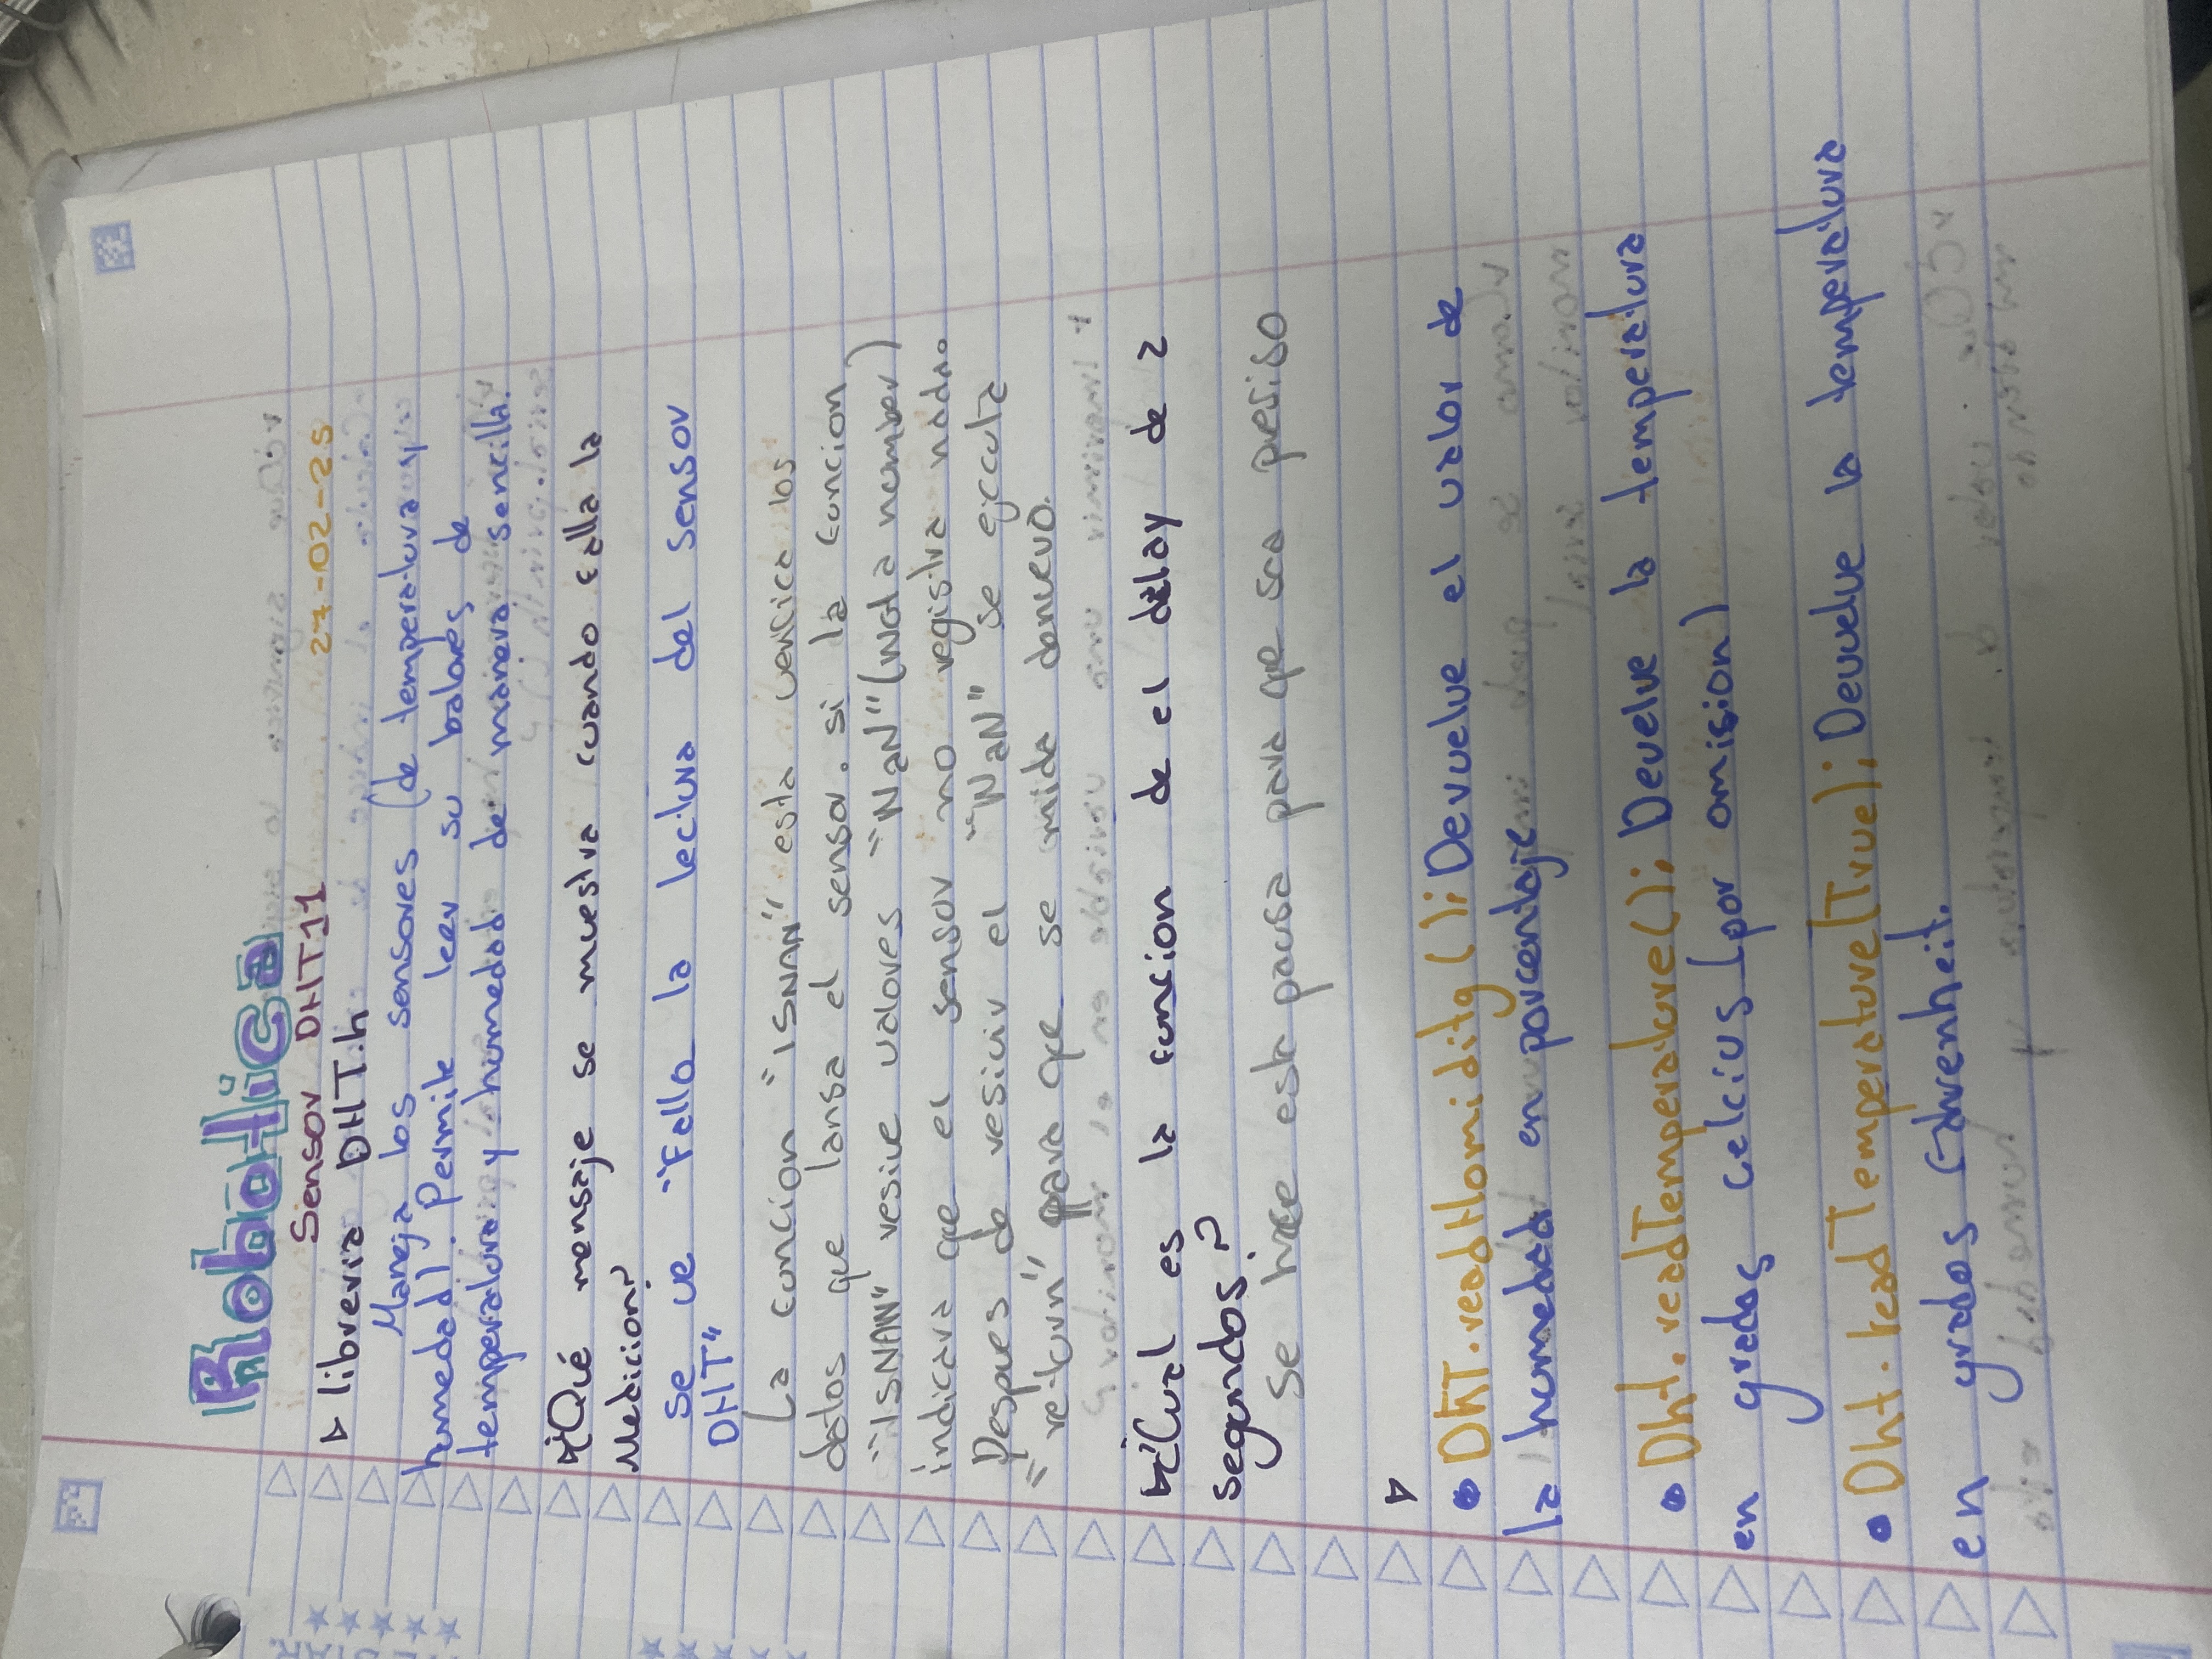 Robotica
Sensor DHT11 27-02-25
libreria DHT.h
Maneja los sensores (de temperatura y
humedad). Permite leer su balores de
temperatura y humedad de manera sencilla.
¿Qué mensaje se muestra cuando falla la
Medicion?
Se ve "Fallo la lectura del sensor
DHT"
La funcion "ISNAN" esta verifica los
datos que lansa el sensor. si la funcion
"ISNAN" resive valores "NaN" (not a number)
indicara que el sensor no registra nada.
Despues de resivir el "NaN" se ejecuta
"return" para que se mida denuevo.
¿Cual es la funcion de el delay de 2
segundos?
Se hace esta pausa para que sea presiso
• DHT.readHomidity(); Devuelve el valor de
la humedad en porcentaje
• Dht.readTemperature(); Devuelve la temperatura
en grados celcius (por omision)
• Dht.readTemperature(True); Devuelve la temperatura
en grados Fahrenheit.